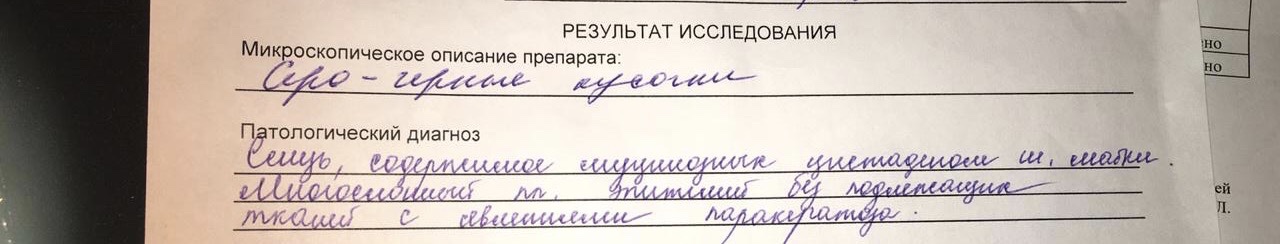 РЕЗУЛЬТАТ ИССЛЕДОВАНИЯ
Микроскопическое описание препарата:
Серо-черные кусочки
Патологический диагноз
Слизь, содержимое муцинозных цистаденом ш. матки.
Многослойный пл. эпителий без подлежащих
тканей с явлениями паракератоза.
но
но
ей
Л.